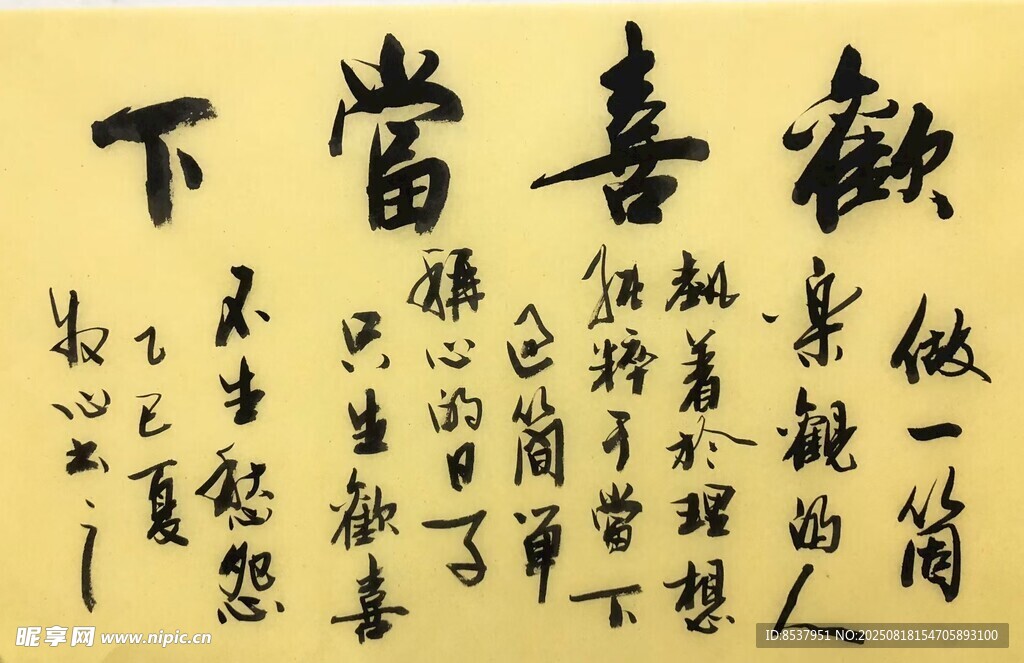 歡喜當下
做一箇
樂觀的人
執着於理想
純粹于當下
過簡單
稱心的日子
只生歡喜
不生愁怨
乙巳夏
牧心書之
昵享网 www.nipic.cn
ID:8537951 NO:20250818154705893100